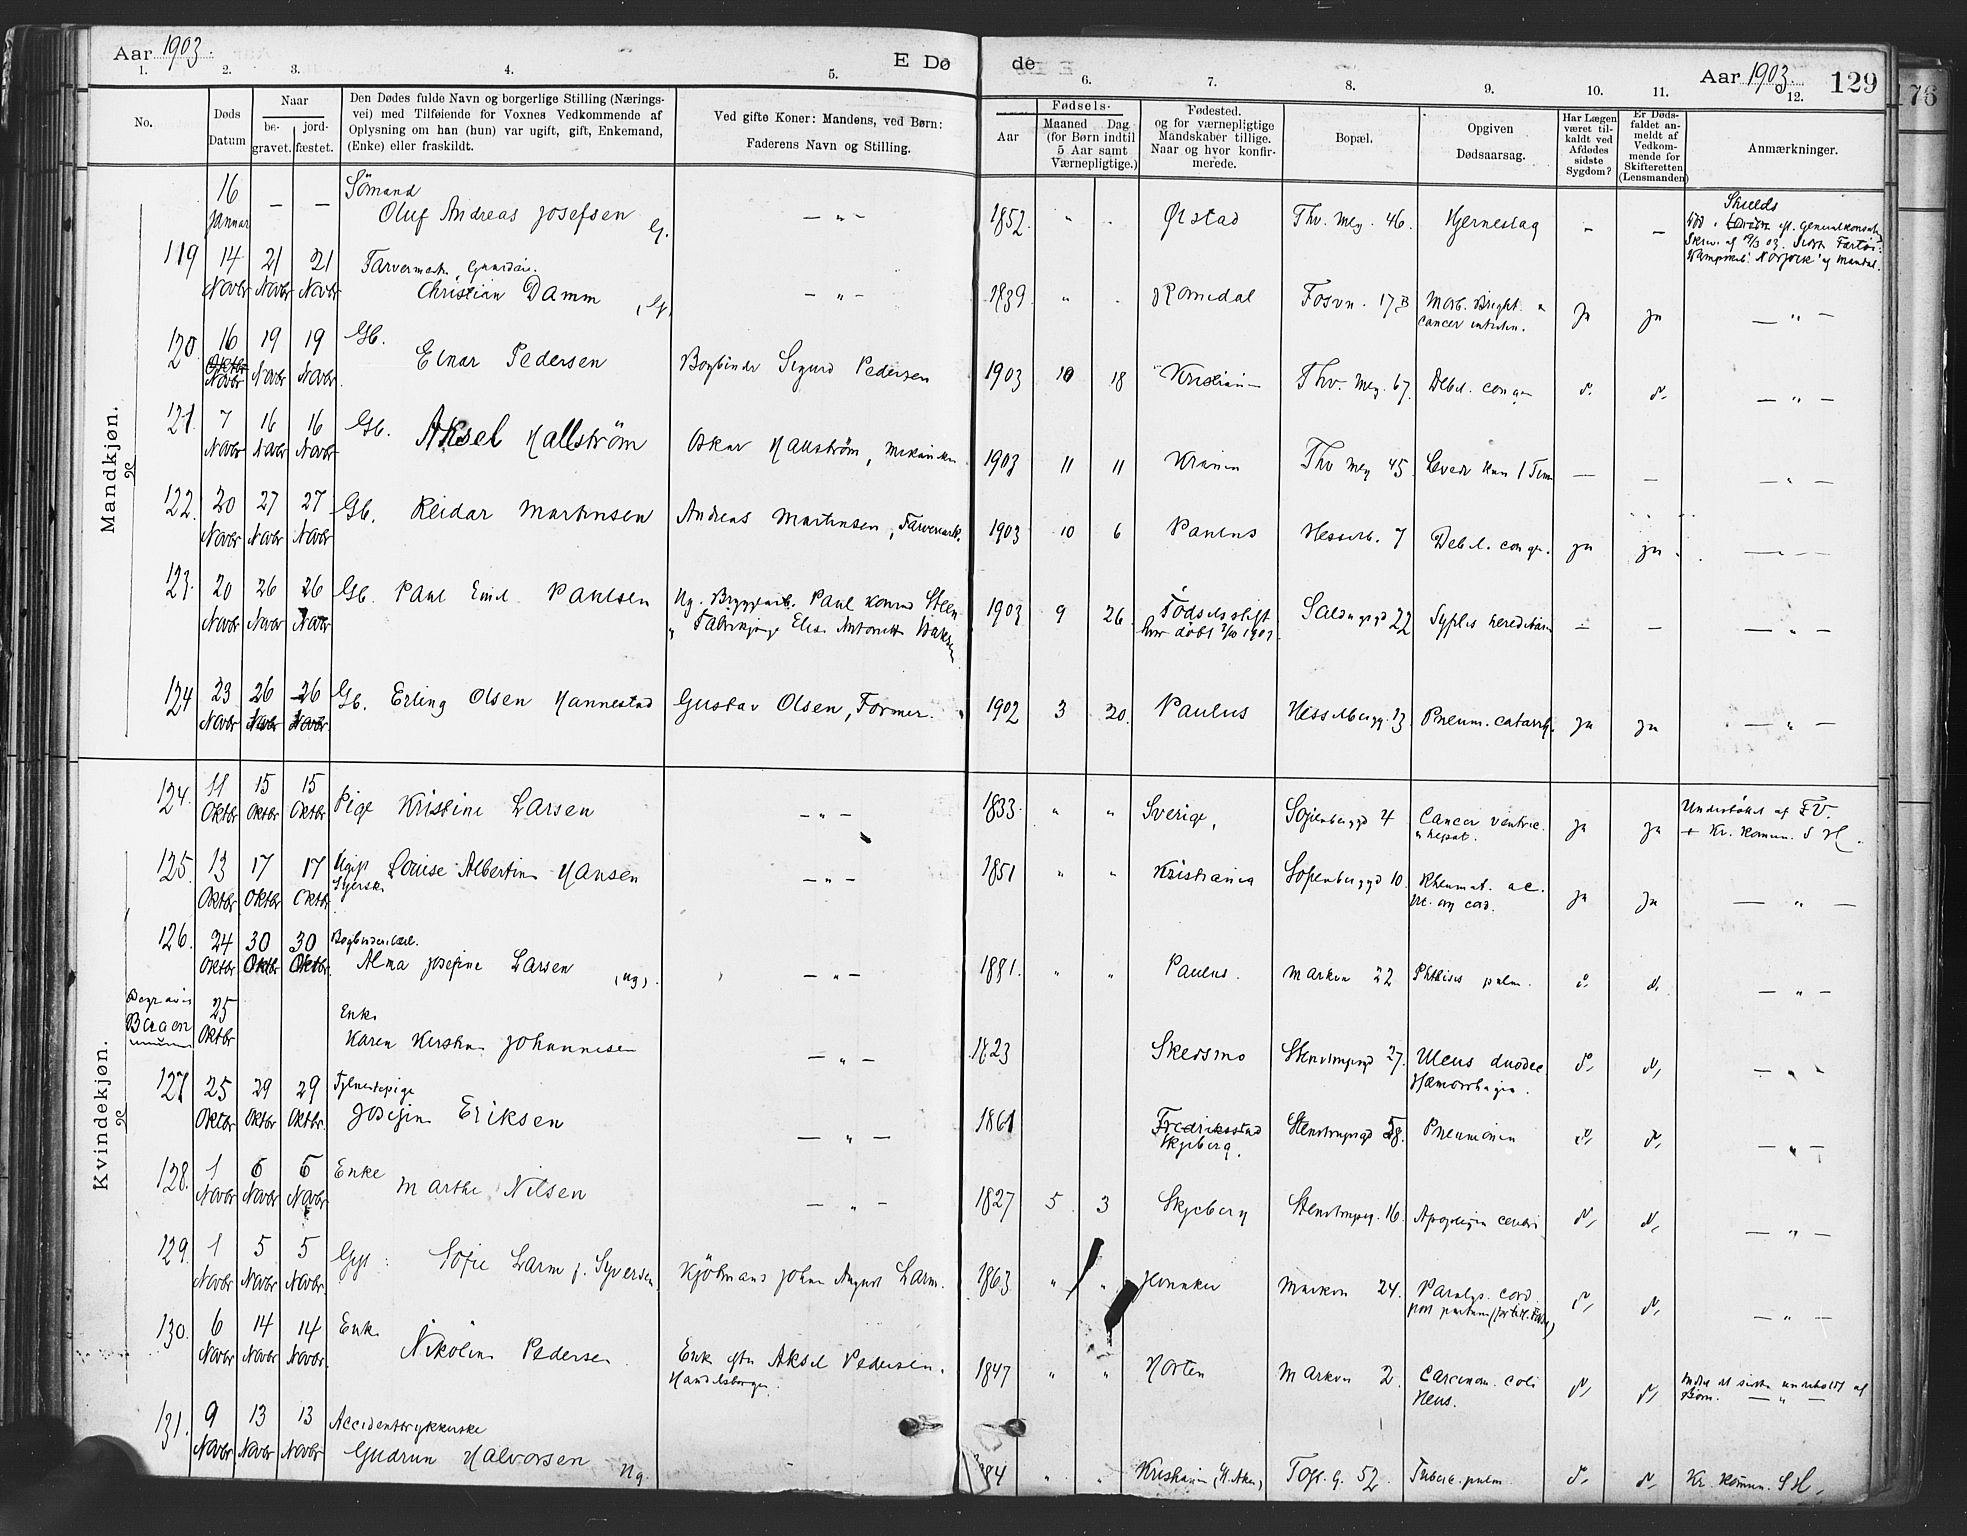 Aar 1903.
E Døde
Aar 1903.
129
176
1. 2. 3. 4. 5. 6. 7. 8. 9. 10. 11. 12.
No.
Døds Datum
Naar
be-gravet.
jord-fæstet.
Den Dødes fulde Navn og borgerlige Stilling (Nærings-
vei) med Tilføiende for Voxnes Vedkommende af
Oplysning om han (hun) var ugift, gift, Enkemand,
(Enke) eller fraskildt.
Ved gifte Koner: Mandens, ved Børn:
Faderens Navn og Stilling.
Fødsels-
Aar
Maaned Dag
(for Børn indtil
5 Aar samt
Værnepligtige.)
Fødested.
og for værnepligtige
Mandskaber tillige.
Naar og hvor konfir-
merede.
Bopæl.
Opgiven
Dødsaarsag.
Har Lægen
været til-
kaldt ved
Afdødes
sidste
Sygdom?
Er Døds-
faldet an-
meldt af
Vedkom-
mende for
Skifteretten
(Lensmanden)
Anmærkninger.
Mandkjøn.
16 Januar — — Sömand Oluf Andreas Josefsen G. — " — 1852. " " Thv. Mey. 46. Hjerneslag — — Skields
119 14 Novbr 21 Novbr 21 Novbr Christian Damm (G. — " — 1839 " " Romedal Fosvn. 17B Morb. Bright. Cancer intestin. ja ja — " —
120. 16 Oktbr Novbr 19 Novbr 19 Novbr. Gb. Einar Pedersen Bogbinder Sigurd Pedersen 1903 10 18 Kristiania Thv. Mey. 67. Debil. cong — " —
121. 7 Novbr 16 Novbr 16 Novbr Gb. Aksel Hallström Oskar Hallström, Mekaniker 1903 11 11 Krania Thv Mey 45. Levede kun 1 Time — — — " —
122. 20 Novbr 27 Novbr 27 Novbr Gb. Reidar Martinsen Andreas Martinsen, Farverarb. 1903 10 6 Paulus Hesselb. 7 Debil. cong. ja ja — " —
123. 20 Novbr 26 Novbr 26 Novbr Gb. Paul Emil Paulsen Ug. Bryggearb. Paul Konrad Steen
" Fabrikpige Elise Antonette 1903 9 26. Fødselsstift. døbt 1903. 22 Syfilis hereditaria — — — " —
124 23 Novbr 26 Novbr 26 Novbr. Gb. Erling Olsen Hannestad Gustav Olsen, Former. 1902 3 20. Paulus Hesselbergg. 13 Pneum. catarrh. ja ja — " —
Kvindekjøn.
124. 11 Oktbr 15 Oktbr 15 Oktbr Pige Kristine Larsen — " — 1833. " " Sverige, Sofienberggd 4 Cancer ventric. & hepat. ja ja Understöttet af F.V.
+ Kr. Komun. S H.
125. 13 Oktbr 17 Oktbr 17 Oktbr Ugift Syersk. Louise Albertine Hansen — " — 1851 " " Kristiania Sofienberggd 10. Rheumat. ac. vit. org cord. ja ja — " —
126. 24 Oktbr 30 Oktbr 30 Oktbr. Alma Josefine Larsen (ug). — " — 1881. " " Paulus. Markvn 22 Phthisis pulm. — " —
25 Oktbr Enke Karen Kirstine Johannesen — " — 1823 Skedsmo Stenstrupgd 27. Ulcus duodec Hæmorrhagia. — " —
127 25 Oktbr 29 Oktbr 29 Oktbr. Tjenestepige Josefine Eriksen — " — 1861 Fredriksstad Skjeberg. Stenstrupgd 58. Pneumonia — " —
128. 1 Novbr 6 Novbr 6 Novbr. Enke Marthe Nilsen — " — 1827 5 3 Skjeberg Stenstrupg. 16 Apoplexia cerebri — " —
129. 1 Novbr 5 Novbr 5 Novbr. Gift: Sofie Larm f. Syversen Kjöbmand Johan August Larm. 1863 " " Markvn 24. Paralys. cord. post partum — " —
130. 6 Novbr 14 Novbr 14 Novbr. Enke Nikoline Pedersen Enke efter Aksel Pedersen. Handelsborger. 1847 " " Horten Markvn 2. Carcinom. coli Ileus.
131. 9 Novbr 13 Novbr 13 Novbr Gudrun Halvorsen Ug. 84 " " Kristiania (V. Aker) Toft. G. 52. Tuberc. pulm Kr. Komun. S H.